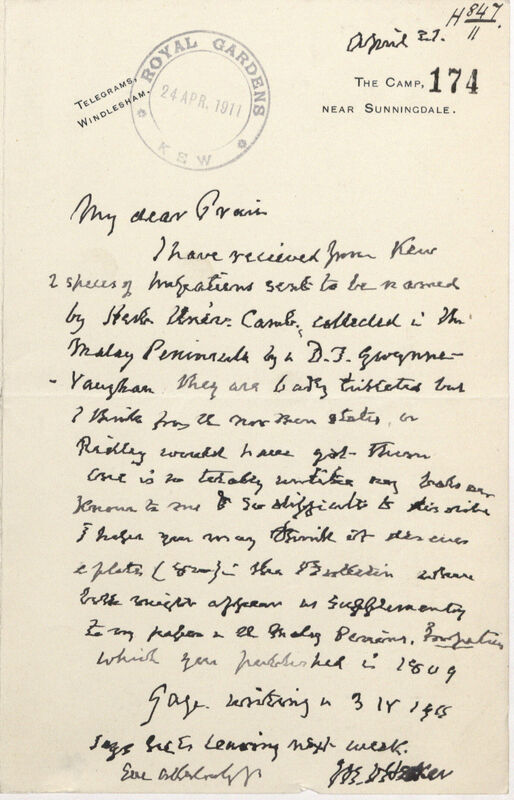 H 847/11
April 21.
174
THE CAMP,
NEAR SUNNINGDALE.
TELEGRAMS,
WINDLESHAM.
ROYAL GARDENS
24 APR. 1911
KEW
My dear Prain
I have recieved from Kew
2 species of Impatiens sent to be named
by Herb. Univ. Camb. collected in the
Malay Peninsula by a D. T. Gwynne-
-Vaughan they are badly but
I think from the northern states, or
Ridley would have got them
one is so totally unlike any
known to me & so difficult to describe
I hope you may think it
a plate in the Bulletin where
both might appear as supplementy
to my paper on the Malay Penins. Impatiens
which you published in 1909
Gage writing on 3 IV 1911
says he is leaving next week.
Ever affectionately yrs
Jos D Hooker